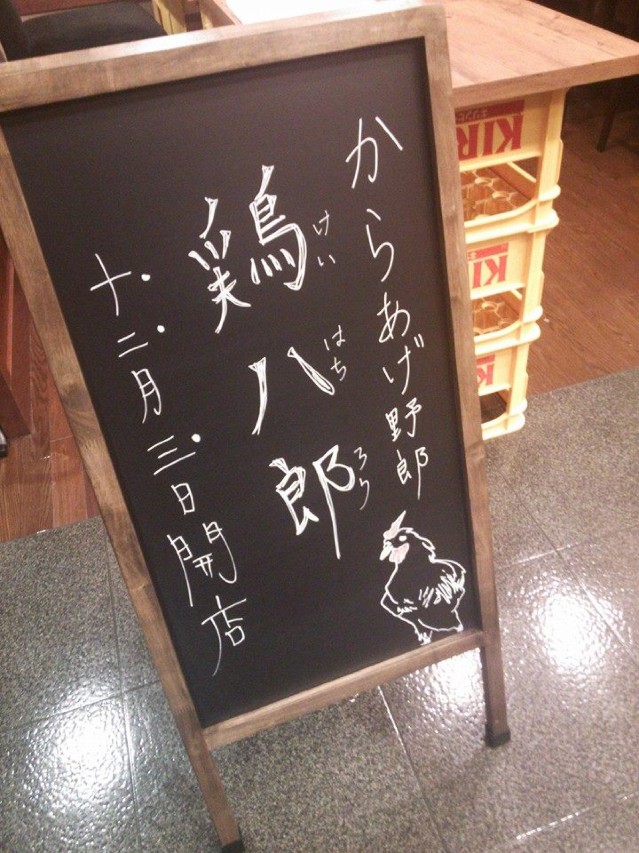 からあげ野郎
鶏八郎
けいはちろう
十二月三日開店
KIR
キリンビ
KIR
K